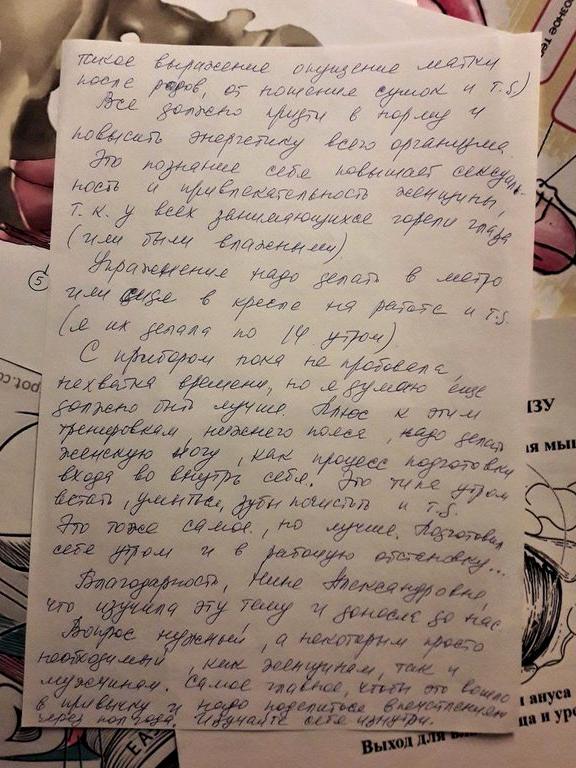 такое выражение опущение матки
после родов, от ношение сумок и т.д)
Все должно придти в норму и
повысить энергетику всего организма.
Это познание себя повышает сексуаль-
ность и привлекательность женщины,
т.к. у всех занимающихся горели глаза
(или были влажными)
Упражнение надо делать в метро
или сидя в кресле на работе и т.д.
(я их делала по 14 утром)
С прибором пока не пробовала,
нехватка времени, но я думаю еще
должно быть лучше. Плюс к этим
тренировкам, нижнего пояса, надо делать
женскую йогу, как процесс подготовки
входа во внутрь себя. Это типа утром
встать, умыться, зубы почистить и т.д.
Это тоже самое, но лучше. Подготовил
себя утром и в рабочую обстановку...
Благодарность, Нине Александровне,
что изучила эту тему и донесла до нас
Вопрос нужный, а некоторым просто
необходимый, как женщинам, так и
мужчинам. Самое главное, чтобы это вошло
в привычку и надо поделиться впечатлением
через пол года. Изучайте себя изнутри.
5
ЗУ
я мыш
и ануса
ца и уро
Выход для